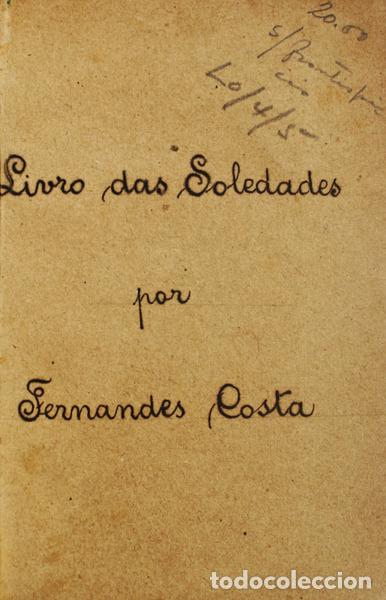 20.00
s/
Lo/4/5
Livro das Soledades
por
Fernandes Costa
todocoleccion